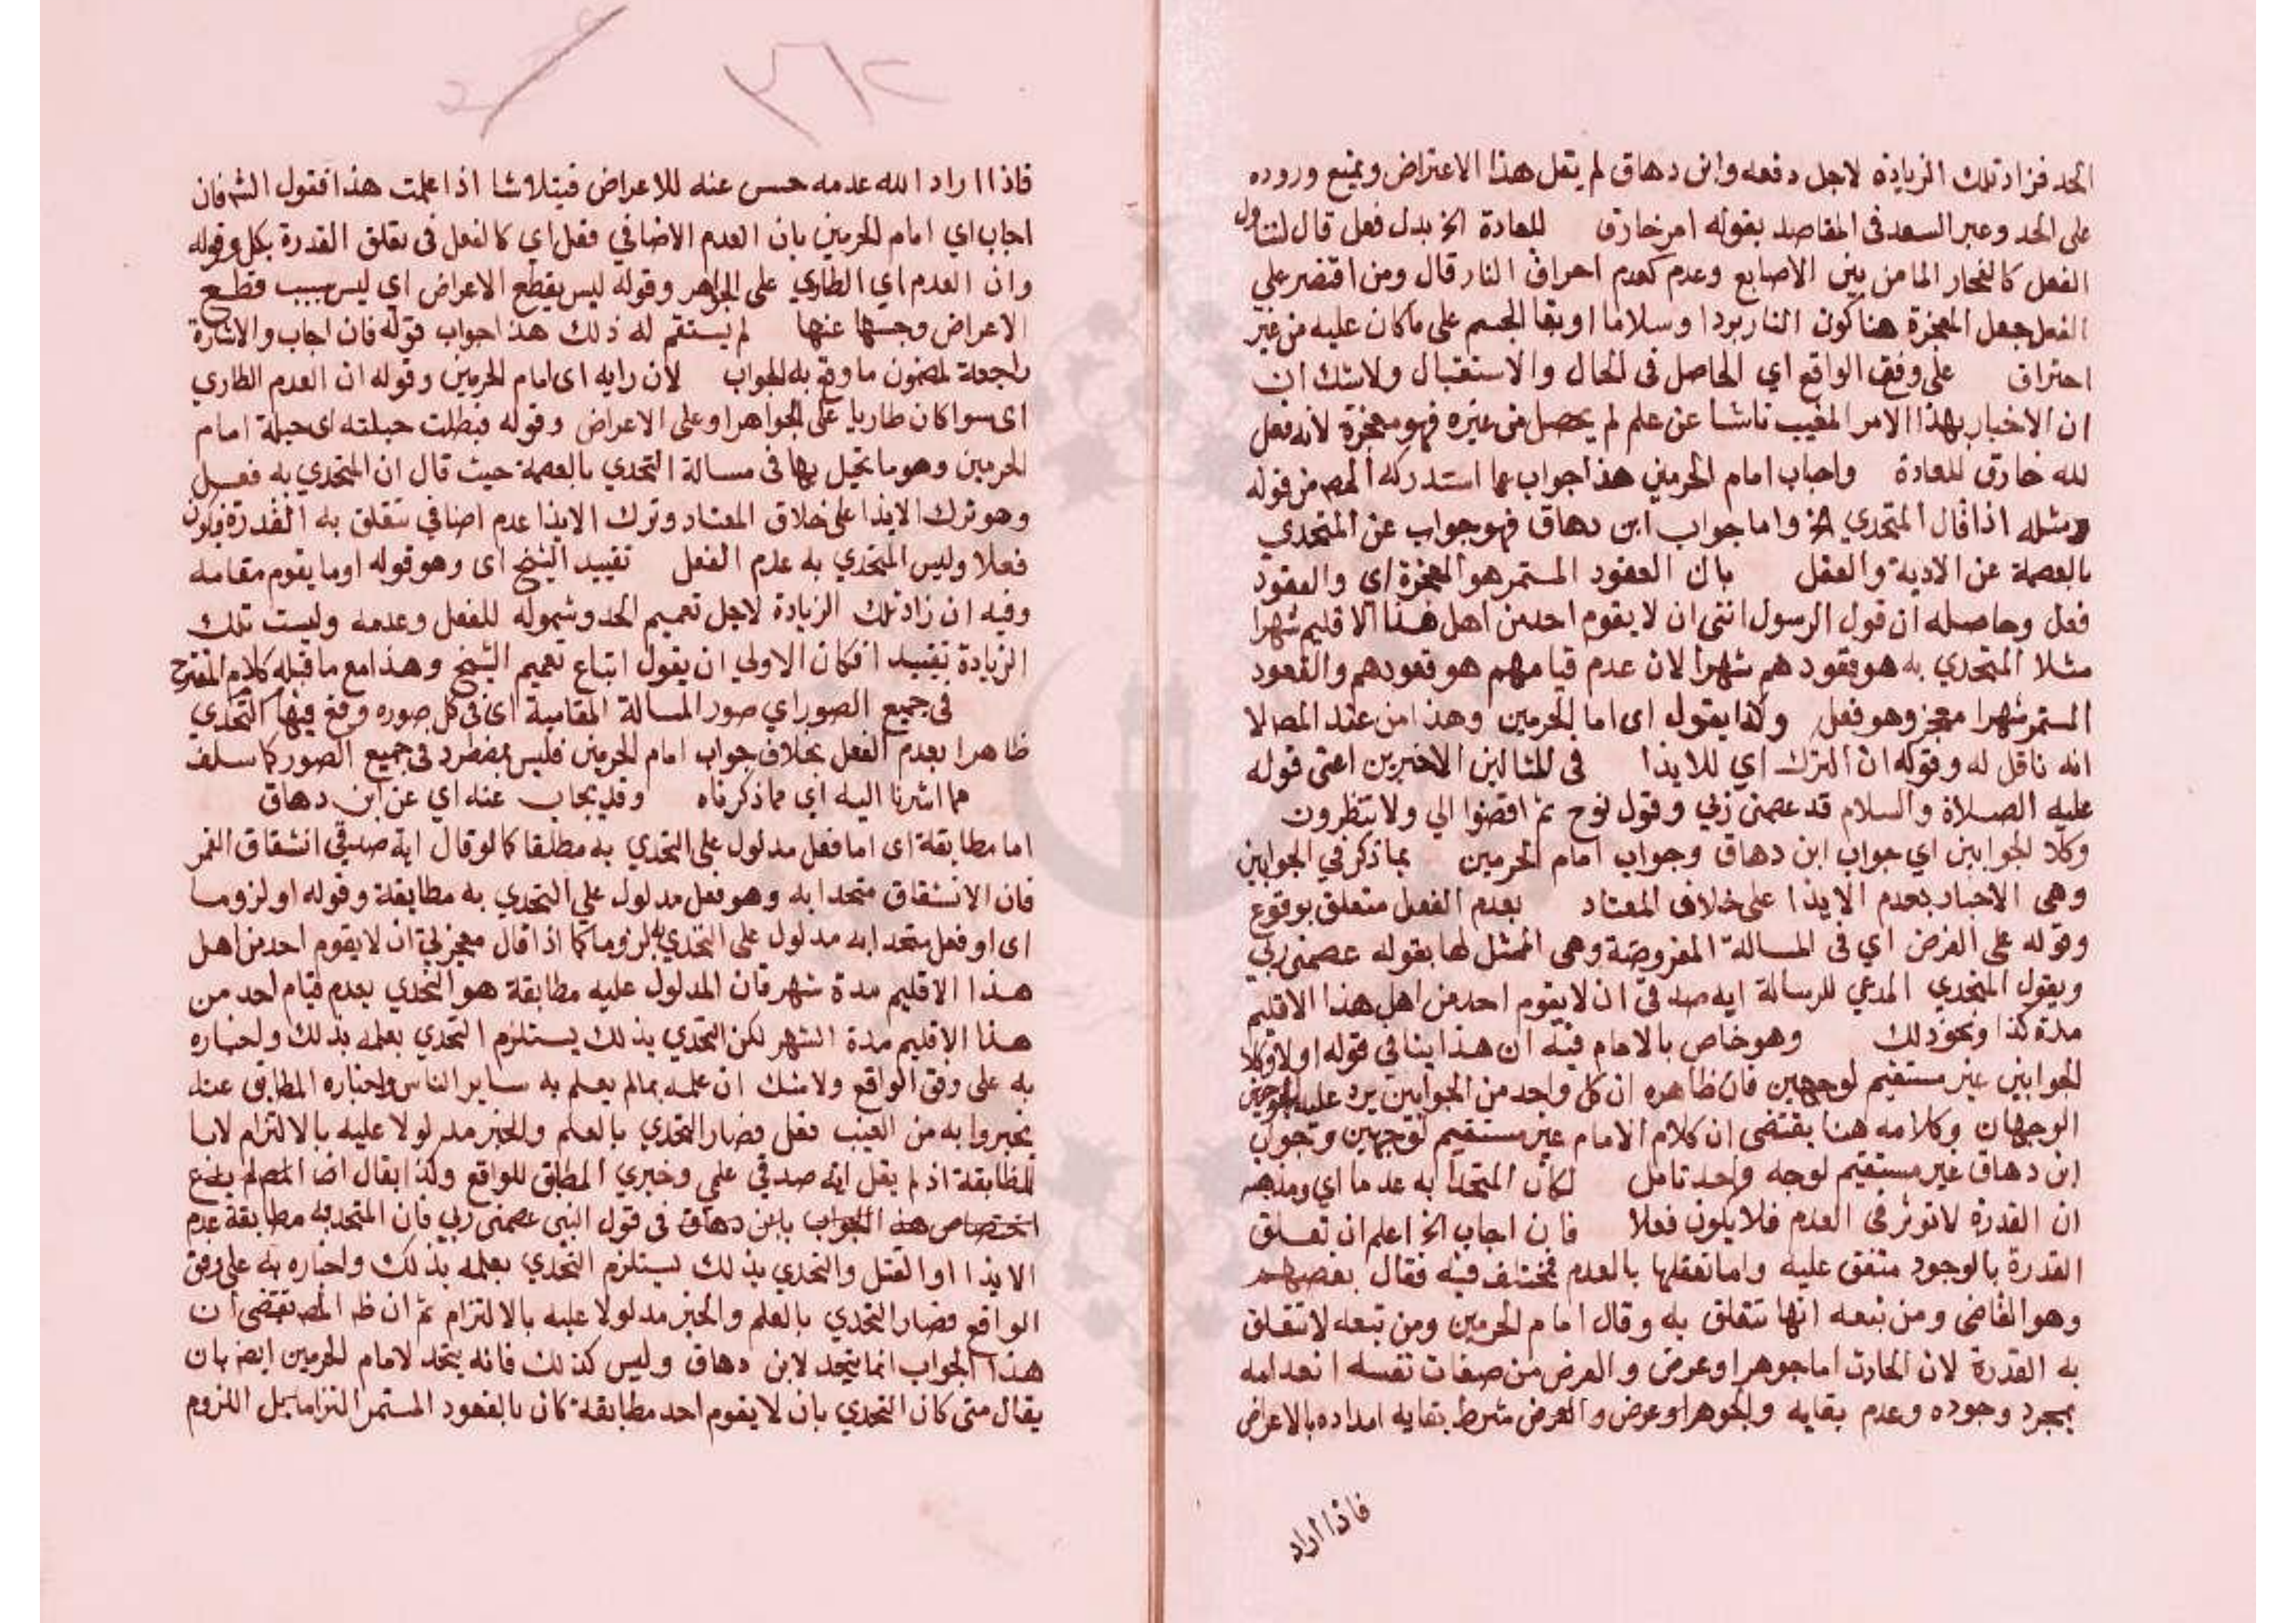 الحد فزاد تلك الزيادة لاجل دفعه وابن دهاق لم يقل هذا الاعتراض ويمنع وروده
على الحد وعبر السعد في المقاصد بقوله امر خارق للعادة الخ بدل فعل قال لتناول
الفعل كانفجار الما من بين الاصابع وعدم كعدم احراق النار قال ومن اقتصر علي
الفعل جعل المعجزة هنا كون النار بردا وسلاما او بقا الجسم على ما كان عليه من غير
احتراق على وفق الواقع اي الحاصل في الحال والاستقبال ولا شك ان
ان الاخبار بهذا الامر المغيب ناشا عن علم لم يحصل من غيره فهو معجزة لانه فعل
لله خارق للعادة واجاب امام الحرمين هذا جواب عما استدركه المص من قوله
ومثله اذا قال المتحدي الخ واما جواب ابن دهاق فهو جواب عن المتحدي
بالعصمة عن الاذية والقتل بان القعود المستمر هو المعجزة اي والقعود
فعل وحاصله ان قول الرسول انني ان لا يقوم احد من اهل هذا الاقليم شهرا
مثلا المتحدي به هو قعودهم شهرا لان عدم قيامهم هو قعودهم والقعود
المستمر شهرا معجز وهو فعل وكذا يقول اى اما الحرمين وهذا من عند المص الا
انه ناقل له وقوله ان الترك اي للايذا في المثالين الاخيرين اعني قوله
عليه الصلاة والسلام قد عصمني ربي وقول نوح ثم اقضوا الي ولا تنظرون
وكلا الجوابين اي جواب ابن دهاق وجواب امام الحرمين بما ذكر في الجوابين
وهى الاخبار بعدم الايذا على خلاف المعتاد بعدم الفعل متعلق بوقوع
وقوله على الفرض اي في المسالة المفروضة وهى الممثل لها بقوله عصمني ربي
ويقول المتحدي المدعي للرسالة ايه صدقي ان لا يقوم احد من اهل هذا الاقليم
مدة كذا ونحو ذلك وهو خاص بالامام فيه ان هذا ينافي قوله اولا وكلا
الجوابين غير مستقيم لوجهين فان ظاهره ان كل واحد من الجوابين يرد عليه
الوجهان وكلامه هنا يقتضى ان كلام الامام غير مستقيم لوجهين وجواب
ابن دهاق غير مستقيم لوجه واحد تامل لكان المتحدا به عدما اي ومذهبه
ان القدرة لا توثر في العدم فلا يكون فعلا فان اجاب الخ اعلم ان تعلق
القدرة بالوجود متفق عليه واما تعلقها بالعدم فمختلف فيه فقال بعضهم
وهو القاضى ومن تبعه انها تتعلق به وقال امام الحرمين ومن تبعه لا تتعلق
به القدرة لان الحادث اما جوهر او عرض والعرض من صفات نفسه انعدامه
بمجرد وجوده وعدم بقايه والجوهر او عرض والعرض شرط بقايه امداده بالاعراض
فاذا اراد
فاذا اراد الله عدمه حبس عنه للاعراض فيتلاشا اذا علمت هذا فقول الش فان
اجاب اي امام الحرمين بان العدم الاضافي فعل اي كالفعل في تعلق القدرة بكل وقوله
وان العدم اي الطاري على الجواهر وقوله ليس بقطع الاعراض اي ليس بسبب قطع
الاعراض وحبسها عنها لم يستقم له ذلك هذا جواب قوله فان اجاب والاشارة
راجعة لمضمون ما وقع به الجواب لان رايه اى امام الحرمين وقوله ان العدم الطاري
اى سوا كان طاريا على الجواهر او على الاعراض وقوله فبطلت حيلته اى حيلة امام
الحرمين وهو ما تحيل بها في مسالة التحدي بالعصمة حيث قال ان المتحدي به فعل
وهو ترك الايذا على خلاف المعتاد وترك الايذا عدم اضافي تتعلق به القدرة فيكون
فعلا وليس المتحدي به عدم الفعل تقييد الشيخ اى وهو قوله او ما يقوم مقامه
وفيه ان زاد تلك الزيادة لاجل تعميم الحد وشموله للفعل وعدمه وليست تلك
الزيادة تقييدا فكان الاولي ان يقول اتباع تعميم الشيخ وهذا مع ما قبله كلام المقترح
في جميع الصور اي صور المسالة المقامية اى في كل صوره وقع فيها التحدي
ظاهرا بعدم الفعل بخلاف جواب امام الحرمين فليس بمضطرد في جميع الصور كما سلف
مما اشرنا اليه اي مما ذكرناه وقد يجاب عنه اي عن ابن دهاق
اما مطابقة اى اما فعل مدلول على التحدي به مطلقا كما لو قال اية صدقي انشقاق القمر
فان الانشقاق متحدا به وهو فعل مدلول علي التحدي به مطابقة وقوله او لزوما
اى او فعل متحدا به مدلول على التحدي به لزوما كما اذا قال معجزتي ان لا يقوم احد من اهل
هذا الاقليم مدة شهر فان المدلول عليه مطابقة هو التحدي بعدم قيام احد من
هذا الاقليم مدة الشهر لكن التحدي بذلك يستلزم التحدي بعلمه بذلك واخباره
به على وفق الواقع ولا شك ان علمه بما لم يعلم به ساير الناس واخباره المطابق عند
يخبروا به من الغيب فعل فصار التحدي بالعلم والخبر مدلولا عليه بالالتزام لا با
لمطابقة اذ لم يقل اية صدقي علمي وخبري المطابق للواقع وكذا يقال اضا المص لم يدع
اختصاص هذا الجواب بابن دهاق في قول النبى عصمني ربي فان المتحد به مطابقة عدم
الايذا او القتل والتحدي بذلك يستلزم التحدي بعلمه بذلك واخباره به على وفق
الواقع فصار التحدي بالعلم والخبر مدلولا عليه بالالتزام ثم ان ظ المص تقتضى ان
هذا الجواب انما يتجه لابن دهاق وليس كذلك فانه يتجه لامام الحرمين ايضه بان
يقال متى كان التحدي بان لا يقوم احد مطابقة كان بالقعود المستمر التزاما بل اللزوم